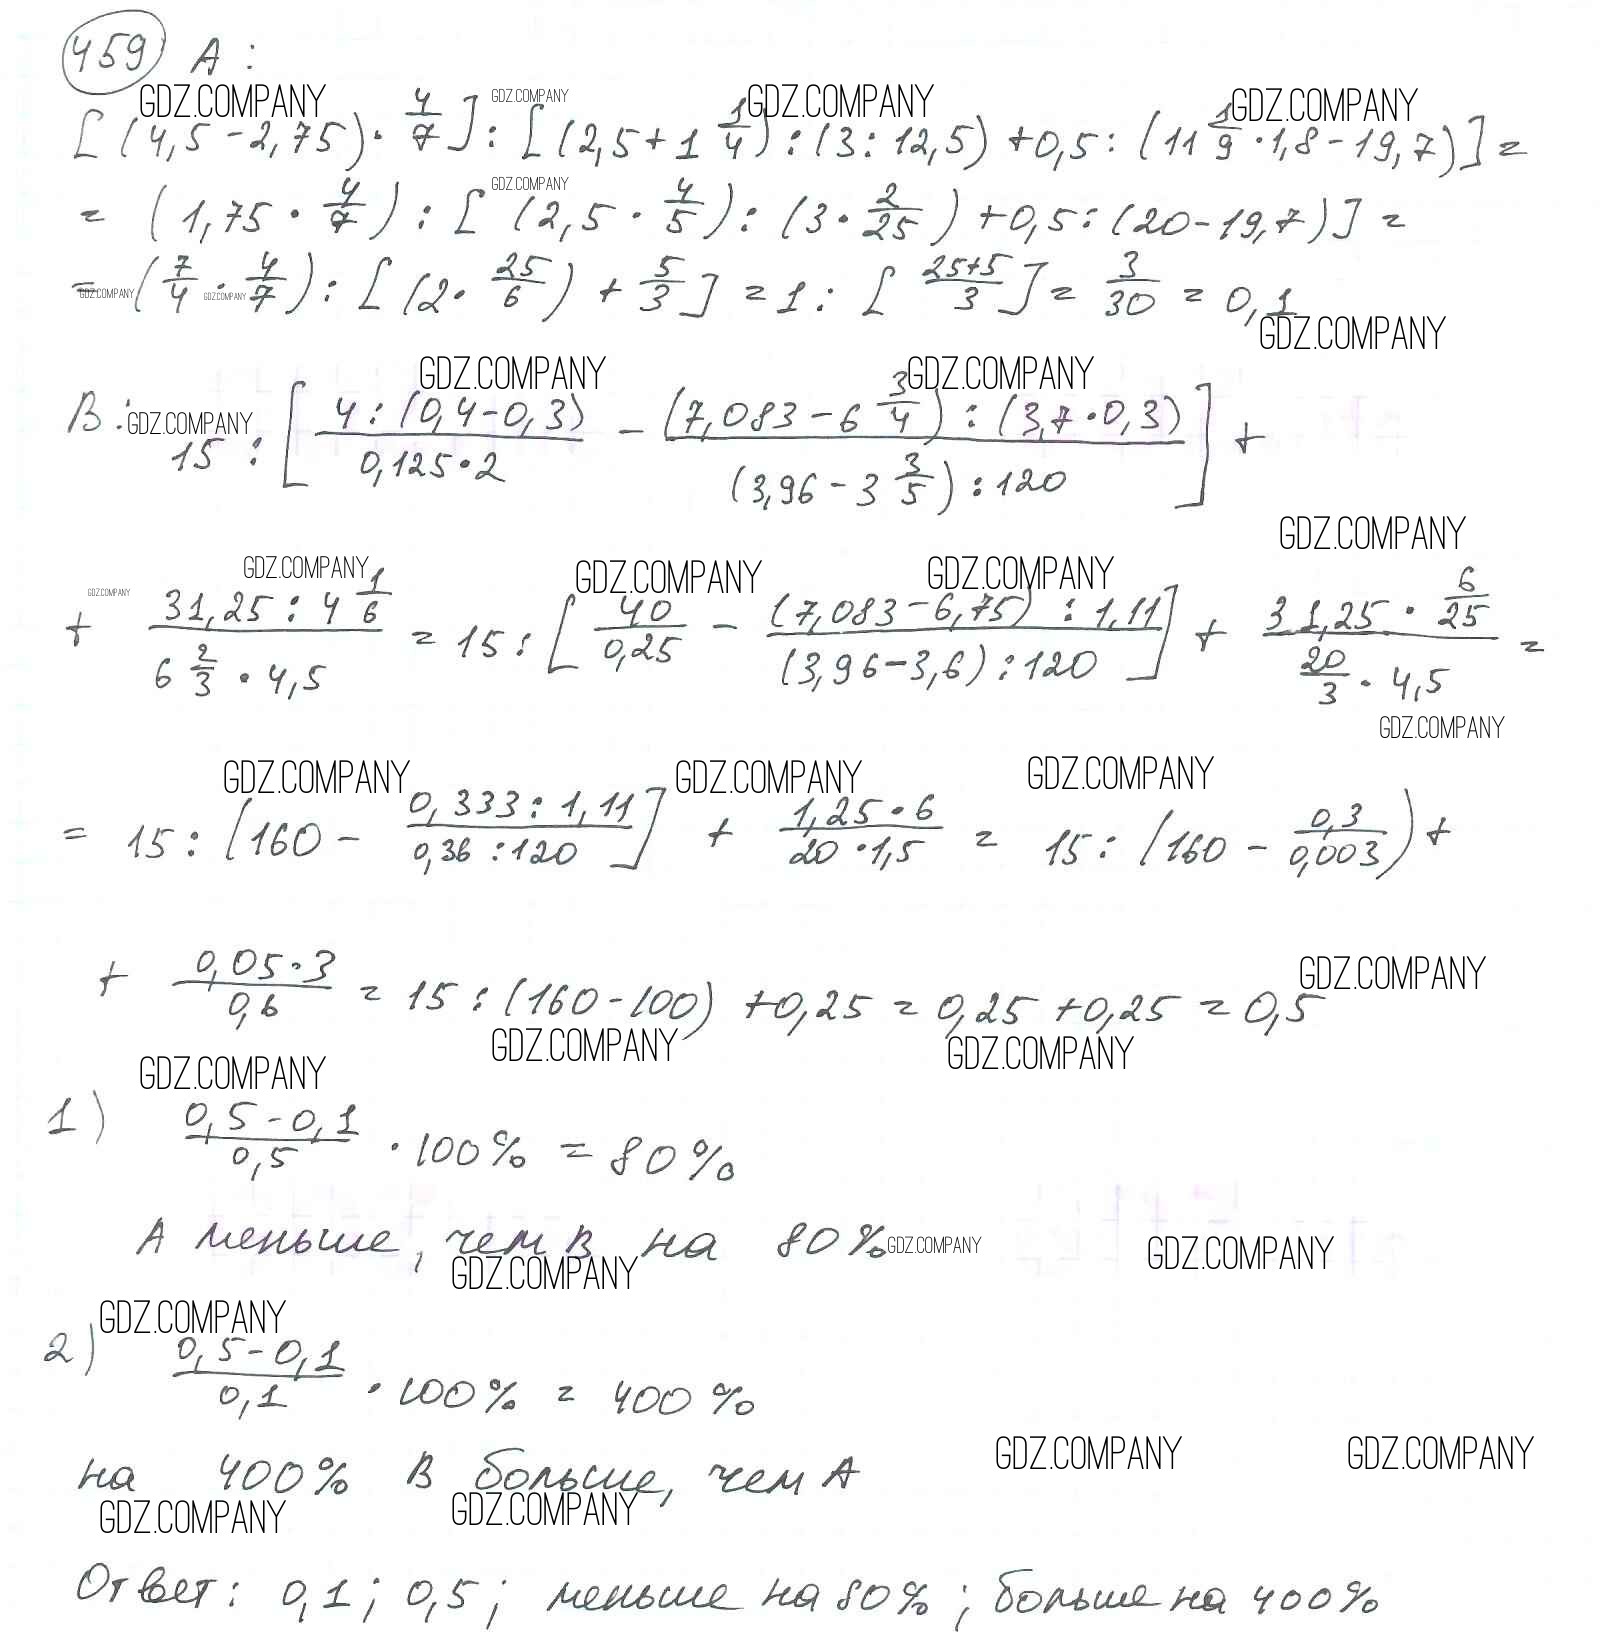 459 А:
[(4,5-2,75)·4/7]:[(2,5+1 1/4):(3:12,5)+0,5:(11 1/9·1,8-19,7)]=
=(1,75·4/7):[(2,5·4/5):(3·2/25)+0,5:(20-19,7)]=
=(7/4·4/7):[(2·25/6)+5/3]=1:[(25+5)/3]=3/30=0,1
В: 15:[4:(0,4-0,3)/(0,125·2) - (7,083-6 3/4):(3,7·0,3)/((3,96-3 3/5):120)]+
+ (31,25:4 1/6)/(6 2/3·4,5) = 15:[40/0,25 - (7,083-6,75):1,11/((3,96-3,6):120)] + (31,25·6/25)/(20/3·4,5) =
= 15:[160 - (0,333:1,11)/(0,36:120)] + (1,25·6)/(20·1,5) = 15:(160 - 0,3/0,003)+
+ (0,05·3)/0,6 = 15:(160-100)+0,25=0,25+0,25=0,5
1) (0,5-0,1)/0,5 · 100% = 80%
А меньше, чем В на 80%
2) (0,5-0,1)/0,1 · 100% = 400%
на 400% В больше, чем А
Ответ: 0,1; 0,5; меньше на 80%; больше на 400%
GDZ.COMPANY